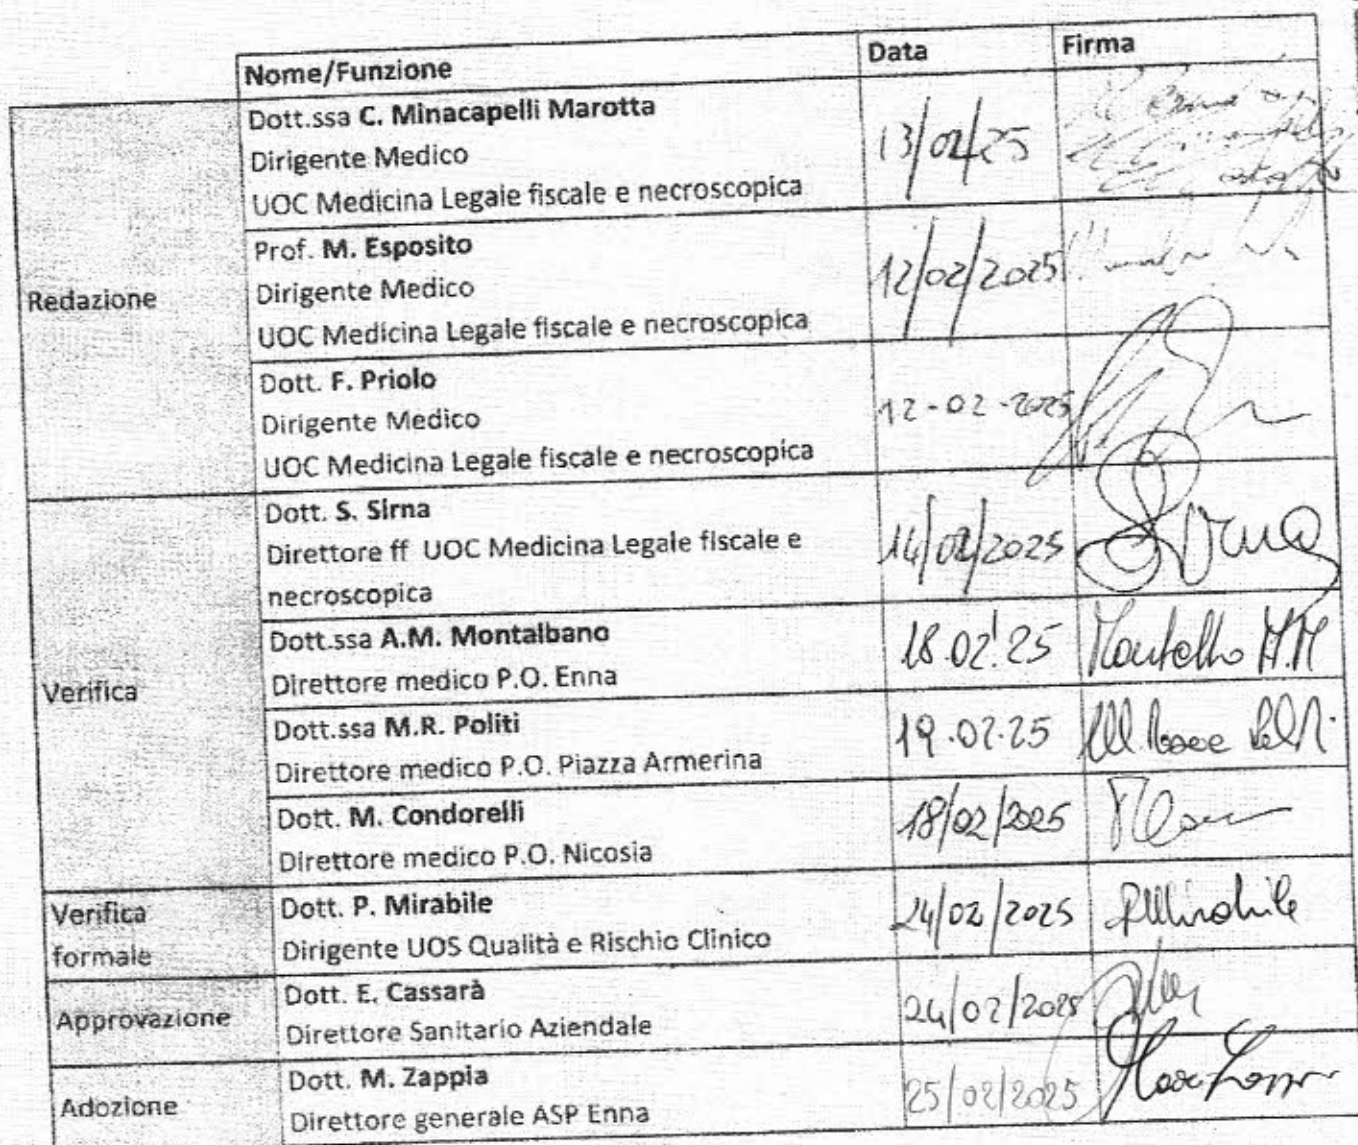 Nome/Funzione Data Firma
Redazione
Dott.ssa C. Minacapelli Marotta
Dirigente Medico
UOC Medicina Legale fiscale e necroscopica
13/02/25
Prof. M. Esposito
Dirigente Medico
UOC Medicina Legale fiscale e necroscopica
12/02/2025
Dott. F. Priolo
Dirigente Medico
UOC Medicina Legale fiscale e necroscopica
12-02-2025
Verifica
Dott. S. Sirna
Direttore ff UOC Medicina Legale fiscale e
necroscopica
14/02/2025
Sirna
Dott.ssa A.M. Montalbano
Direttore medico P.O. Enna
18.02.25
Dott.ssa M.R. Politi
Direttore medico P.O. Piazza Armerina
19.02.25
Dott. M. Condorelli
Direttore medico P.O. Nicosia
18/02/2025
Verifica
formale
Dott. P. Mirabile
Dirigente UOS Qualità e Rischio Clinico
24/02/2025
PMirabile
Approvazione
Dott. E. Cassarà
Direttore Sanitario Aziendale
24/02/2025
Adozione
Dott. M. Zappia
Direttore generale ASP Enna
25/02/2025